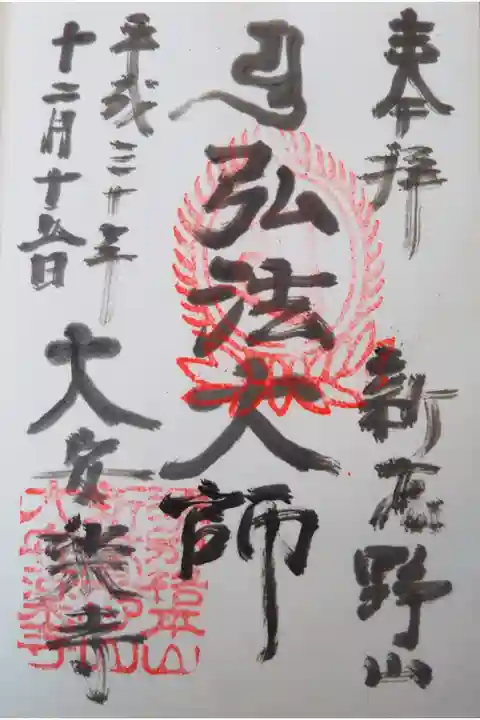 奉拝 新高野山
弘法大師
平成三十年
十二月十五日
大安楽寺